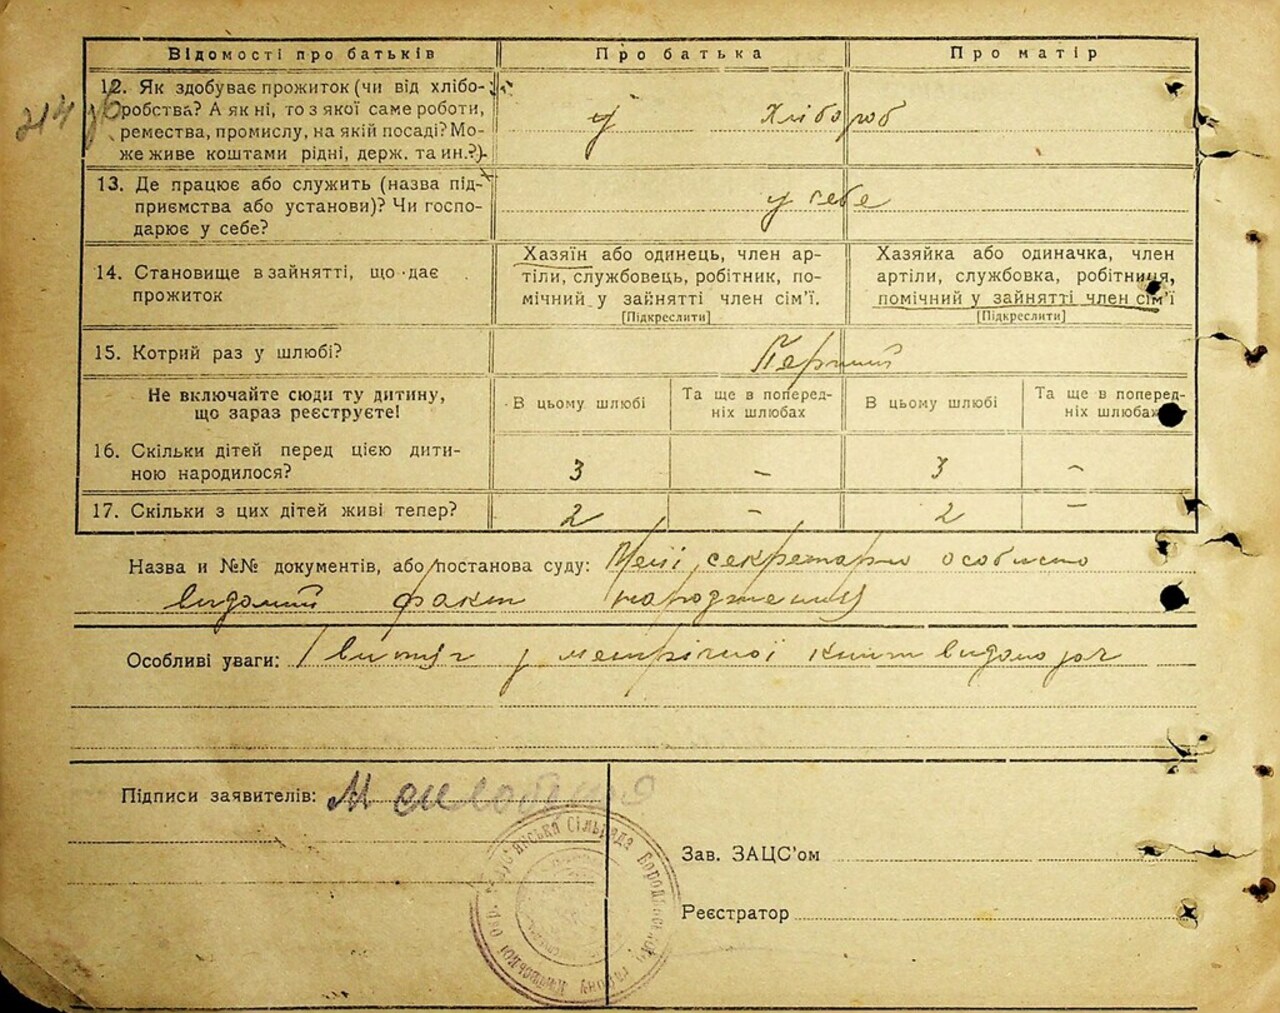 Відомості про батьків Про батька Про матір
12. Як здобуває прожиток (чи від хлібо-
робства? А як ні, то з якої саме роботи,
ремества, промислу, на якій посаді? Мо-
же живе коштами рідні, держ. та ин.?)
Хлібороб
214
13. Де працює або служить (назва під-
приємства або установи)? Чи госпо-
дарює у себе?
у себе
14. Становище в зайнятті, що дає
прожиток
Хазяїн або одинець, член ар-
тіли, службовець, робітник, по-
мічний у зайнятті член сім'ї.
[Підкреслити]
Хазяйка або одиначка, член
артіли, службовка, робітниця,
помічний у зайнятті член сім'ї
[Підкреслити]
15. Котрий раз у шлюбі?
Перший
Не включайте сюди ту дитину,
що зараз реєструєте!
В цьому шлюбі
Та ще в поперед-
ніх шлюбах
В цьому шлюбі
Та ще в поперед-
ніх шлюбах
16. Скільки дітей перед цією дити-
ною народилося?
3 - 3 -
17. Скільки з цих дітей живі тепер? 2 - 2 -
Назва и №№ документів, або постанова суду: секретарю особисто
видомий факт народження
Особливі уваги: витяг з метрічної книги видано
Підписи заявителів: М
Сільрада Бородянського району Київської окр.
Зав. ЗАЦС'ом
Реєстратор